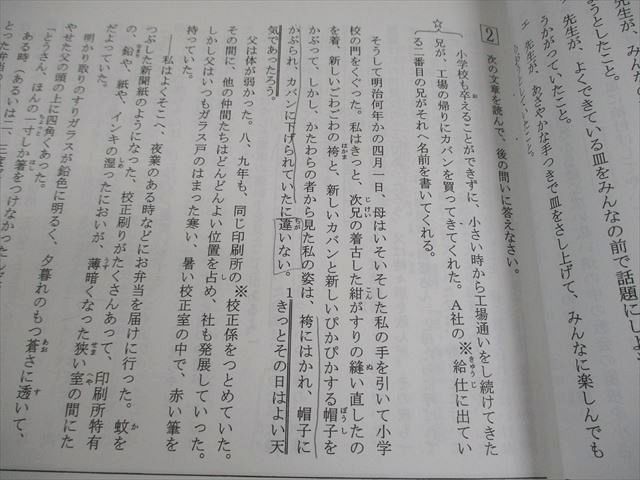 うとしたこと。
先生が、よくできている皿をみんなの前で話題にしよ
うかがっていたこと。
エ 先生が、あざやかな手つきで皿をさし上げて、みんなに楽しんでも
2 次の文章を読んで、後の問いに答えなさい。
小学校も卒えることができずに、小さい時から工場通いをし続けてきた
☆兄が、工場の帰りにカバンを買ってきてくれた。A社の※給仕に出てい
る二番目の兄がそれへ名前を書いてくれる。
そうして明治何年かの四月一日、母はいそいそした私の手を引いて小学
校の門をくぐった。私はきっと、次兄の着古した紺がすりの縫い直したの
を着、新しいごわごわの袴と、新しいカバンと新しいぴかぴかする帽子を
かぶって、しかし、かたわらの者から見た私の姿は、袴にはかれ、帽子に
かぶられ、カバンに下げられていたに違いない。1きっとその日はよい天
気であったろう。
父は体が弱かった。八、九年も、同じ印刷所の※校正係をつとめていた。
その間に、他の仲間たちはどんどんよい位置を占め、社も発展していった。
しかし父はいつもガラス戸のはまった寒い、暑い校正室の中で、赤い筆を
持っていた。
──私はよくそこへ、夜業のある時などにお弁当を届けに行った。蚊を
つぶした新聞紙のようになった、校正刷りがたくさんあって、印刷所特有
の、鉛や、紙や、インキの湿ったにおいが、薄暗くなった狭い室の間にた
だよっていた。
明かり取りのすりガラスが鉛色に明るく、夕暮れのもつ蒼さに透いて、
やせた父の頭の上に四角くあった。
「とうさん、ほんの一寸しか箸をつけなかった
ある時（あるいは二、三度
とった弁当の